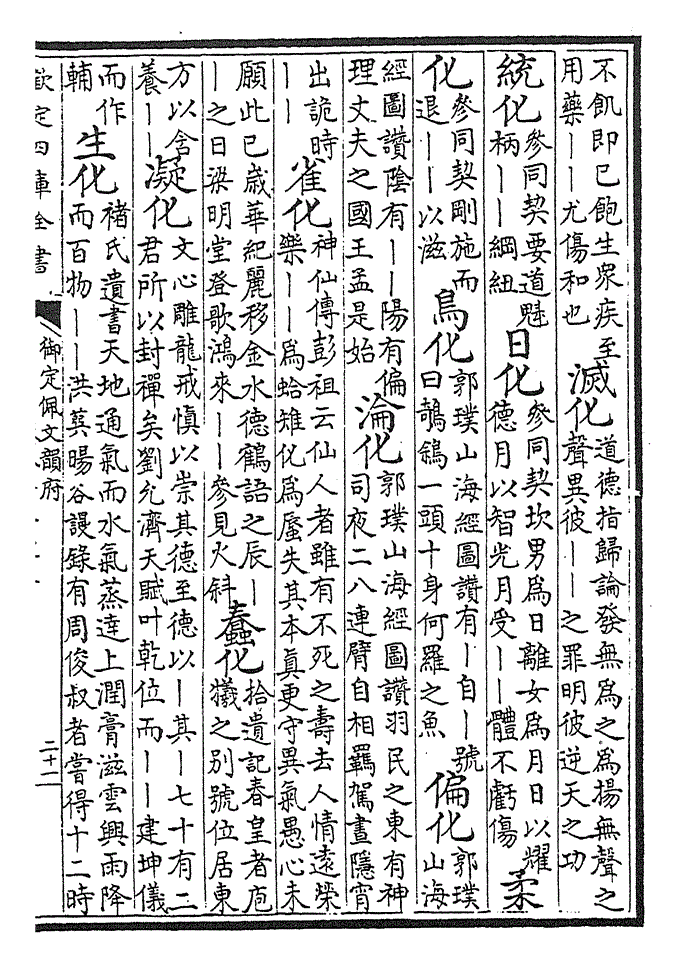 不飢即已飽生衆疾至
用藥——尤傷和也
滅化
道德指歸論發無爲之爲揚無聲之
聲異彼——之罪明彼逆天之功
統化
參同契要道魁
柄——綱紐
日化
參同契坎男爲日離女爲月日以耀
德月以智光月受——體不虧傷
柔
化
參同契剛施而
退——以滋
鳥化
郭璞山海經圖讚有—自—號
曰鵲鶴一頭十身何羅之魚
偏化
郭璞
山海
經圖讚陰有——陽有偏
理丈夫之國王孟是始
淪化
郭璞山海經圖讚羽民之東有神
司夜二八連臂自相羈駕晝隱宵
出詭時
——
雀化
神仙傳彭祖云仙人者雖有不死之壽去人情遠榮
樂——爲蛤雉化爲蜃失其本眞更守異氣愚心未
願此已歲華紀麗移金水德鶴語之辰—
—之日梁明堂登歌鴻來——參見火斜
蠢化
拾遺記春皇者庖
犧之別號位居東
方以含
養——
凝化
文心雕龍戒慎以崇其德至德以—其—七十有二
君所以封禪矣劉允濟天賦叶乾位而——建坤儀
而作
輔
生化
褚氏遺書天地通氣而水氣蒸達上潤膏滋雲興雨降
而百物——洪蓂暘谷謾錄有周俊叔者嘗得十二時
欽定四庫全書
御定佩文韻府
二十二